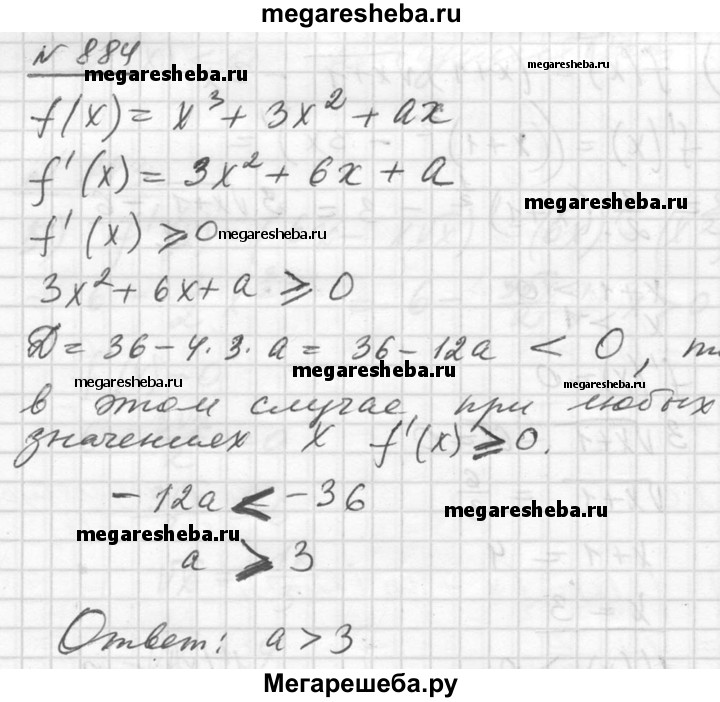 megaresheba.ru
N 884
megaresheba.ru
megaresheba.ru
f(x) = x³ + 3x² + ax
f'(x) = 3x² + 6x + a
megaresheba.ru
f'(x) ⩾ 0
megaresheba.ru
3x² + 6x + a ⩾ 0
D = 36 - 4 · 3 · a = 36 - 12a < 0,
megaresheba.ru
megaresheba.ru
megaresheba.ru
в этом случае, при любых
значениях x f'(x) ⩾ 0.
-12a < -36
megaresheba.ru
megaresheba.ru
a > 3
Ответ: a > 3
Мегарешеба.ру